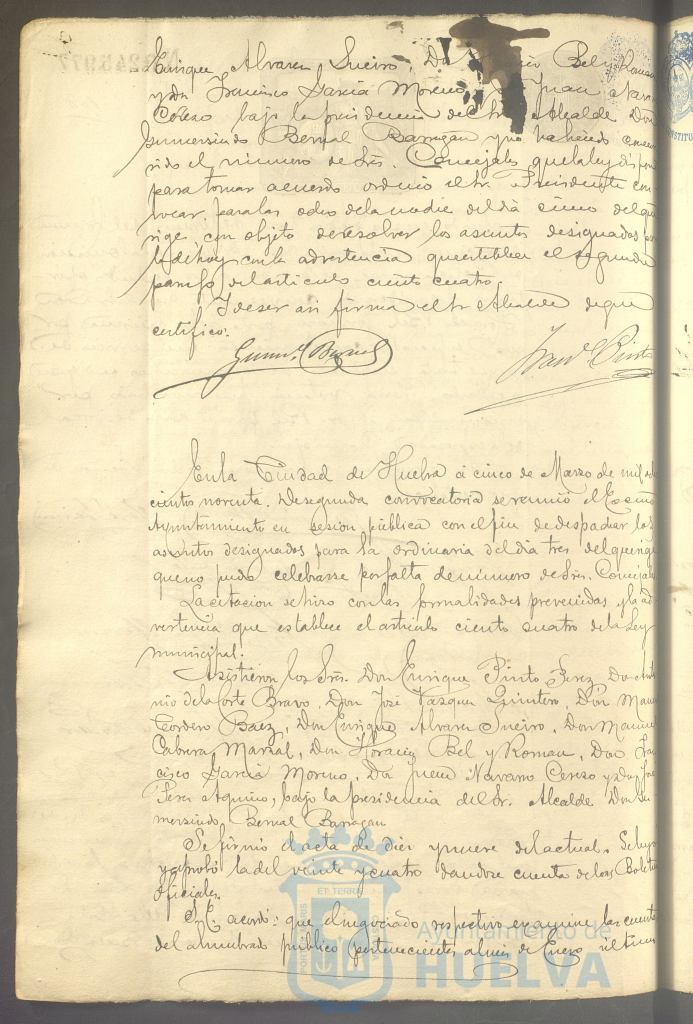 Enrique Alvarez Sueiro, Don Horacio Bel y Roman
y Don Francisco Garcia Moreno, Juan Nava
Cerezo bajo la presidencia del Sr. Alcalde Don
Gumersindo Bernal Barragan y no habiendo concu
rrido el número de Srs. Concejales que la ley dispone
para tomar acuerdo ordenó el Sr. Presidente con
vocar para las ocho de la noche del dia cinco del que
rige con objeto de resolver los asuntos designados pa
la de hoy con la advertencia que establece el segundo
parrafo del artículo ciento cuatro.
Y de ser asi firma el Sr Alcalde de que
certifico.
Gumdo. Bernal
Franco. Pinto
En la Ciudad de Huelva á cinco de Marzo de mil ocho
cientos noventa. De segunda convocatoria se reunió el Excmo
Ayuntamiento en sesion publica con el fin de despachar los
asuntos designados para la ordinaria del dia tres del que rige
que no pudo celebrarse por falta de número de Srs. Concejales
La citacion se hizo con las formalidades prevenidas y la ad
vertencia que establece el artículo ciento cuatro de la Ley
municipal.
Asistieron los Srs. Don Enrique Pinto Perez Don Anto
nio de la Corte Bravo, Don José Vazquez Quintero, Don Manuel
Cordero Baez, Don Enrique Alvarez Sueiro, Don Manuel
Cabrera Marzal, Don Horacio Bel y Roman, Don Fran
cisco Garcia Moreno, Don Juan Navarro Cerezo y Don José
Perez Aquino, bajo la presidencia del Sr. Alcalde Don Gu
mersindo Bernal Barragan
Se firmó el acta de diez y nueve del actual. Se leyó
y aprobó la del veinte y cuatro dandose cuenta de los Boletines
Oficiales.
S.E. acordó: que el negociado respectivo examine las cuentas
del alumbrado público pertenecientes al mes de Enero último
Ayuntamiento de
HUELVA